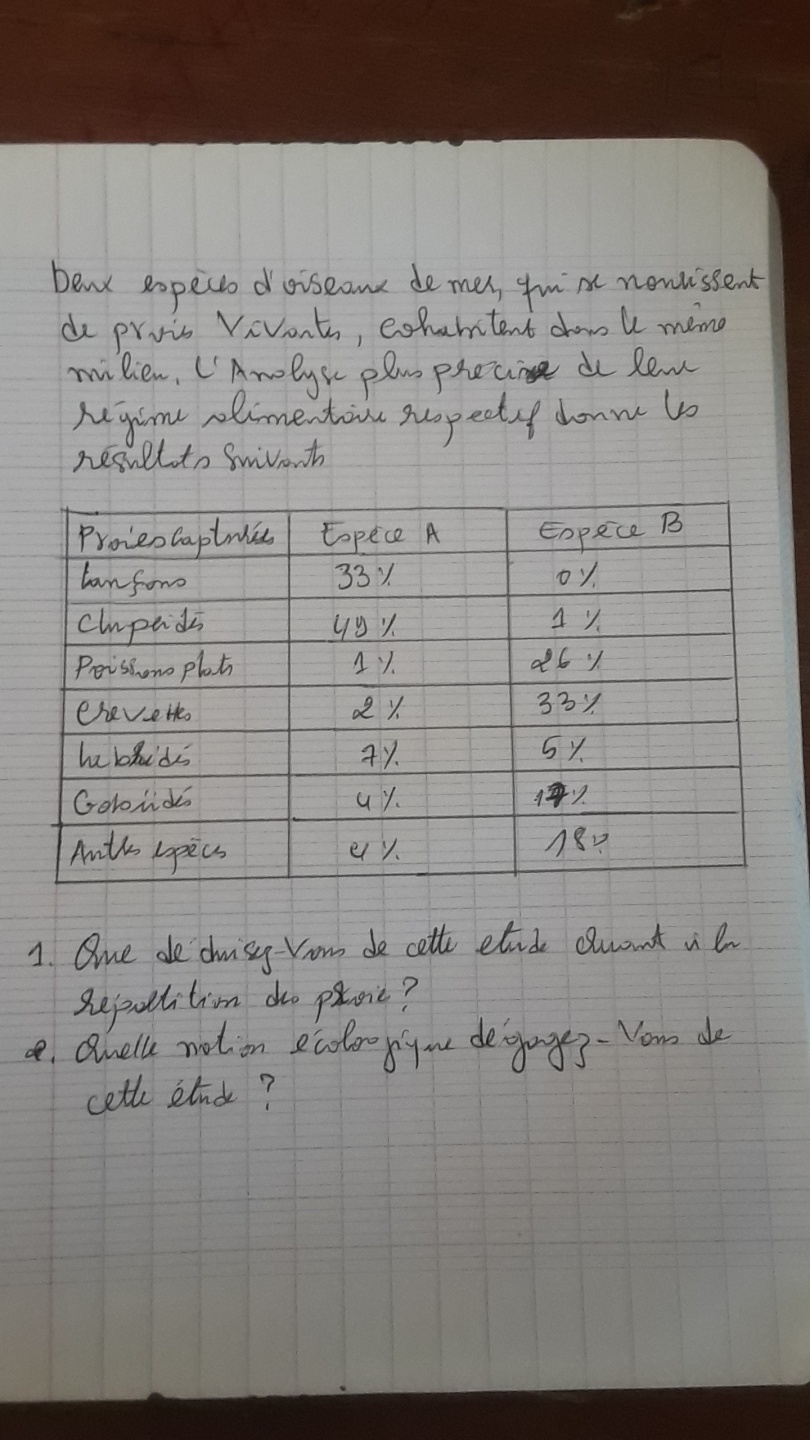 Deux espèces d'oiseaux de mer, qui se nourissent
de proies Vivantes, cohabitent dans le même
milieu. L'Analyse plus precise de leur
régime alimentaire respectif donne les
résultats Suivants
Proies Capturées Espèce A Espèce B
Lançons 33% 0%
Clupeidés 49% 1%
Poissons plats 1% 26%
Crevettes 2% 33%
Labridés 7% 5%
Gobiidés 4% 17%
Autres espèces 4% 18%
1. Que déduisez-Vous de cette etude Quant à la
répartition des proie?
2. Quelle notion écologique dégagez-Vous de
cette étude ?